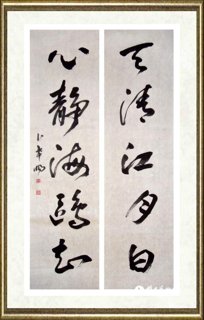 天清江月白
心静海鸥知